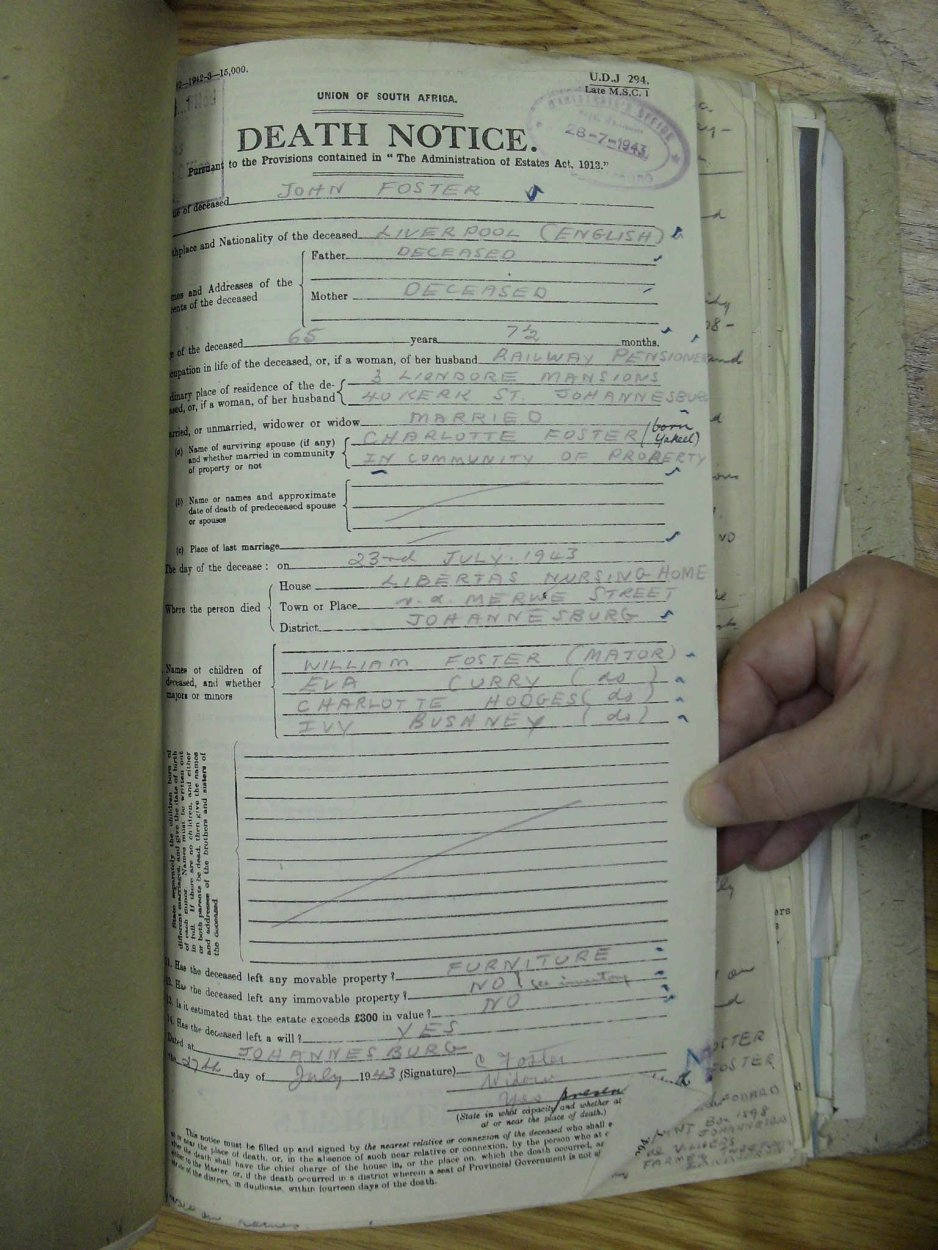 —1942-3—15,000.
U.D.J 294.
Late M.S.C. 1
UNION OF SOUTH AFRICA.
MAGISTRATE'S OFFICE
28-7-1943
DEATH NOTICE.
Pursuant to the Provisions contained in "The Administration of Estates Act, 1913."
of deceased JOHN FOSTER
thplace and Nationality of the deceased LIVERPOOL (ENGLISH)
mes and Addresses of the
rents of the deceased
Father DECEASED
Mother DECEASED
e of the deceased 65 years 7½ months.
cupation in life of the deceased, or, if a woman, of her husband RAILWAY PENSIONER
dinary place of residence of the de-
ased, or, if a woman, of her husband
3 LIONDORE MANSIONS
40 KERK ST. JOHANNESBURG
arried, or unmarried, widower or widow MARRIED
(a) Name of surviving spouse (if any)
and whether married in community
of property or not
CHARLOTTE FOSTER (born Yakeel)
IN COMMUNITY OF PROPERTY
(b) Name or names and approximate
date of death of predeceased spouse
or spouses
(c) Place of last marriage
The day of the decease : on 23rd JULY. 1943
Where the person died
House LIBERTAS NURSING HOME
Town or Place v.d. MERWE STREET
District JOHANNESBURG
Names of children of
deceased, and whether
majors or minors
WILLIAM FOSTER (MAJOR)
EVA CURRY (do)
CHARLOTTE HODGES (do)
IVY BUSHNEY (do)
State separately the children born of
different marriages, and give the date of birth
of each minor. Names must be written out
in full. If there are no children, and either
or both parents be dead, then give the names
and addresses of the brothers and sisters of
the deceased.
11. Has the deceased left any movable property ? FURNITURE
12. Has the deceased left any immovable property ? NO see inventory
13. Is it estimated that the estate exceeds £300 in value ? NO
14. Has the deceased left a will ? YES
Dated at JOHANNESBURG
the 27th day of July 1943 (Signature) C Foster
Widow
Yes present
(State in what capacity and whether at
or near the place of death.)
This notice must be filled up and signed by the nearest relative or connexion of the deceased who shall
at or near the place of death, or, in the absence of such near relative or connexion, by the person who at
the death shall have the chief charge of the house in, or the place on, which the death occurred,
to the Master or, if the death occurred in a district wherein a seat of Provincial Government is not
of the district, in duplicate, within fourteen days of the death.
FOSTER
FOSTER
BOX 1598
JOHANNESBURG